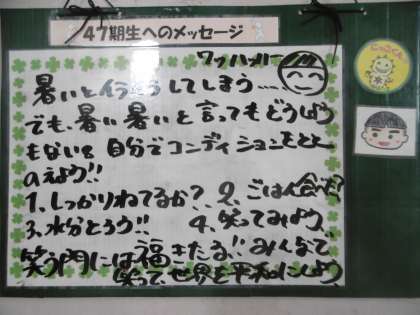 47期生へのメッセージ
ワッハッハー
暑いとイライラしてしまう……
でも、暑い暑いと言ってもどうしよう
もない!!自分でコンディションをとと
のえよう!!
1、しっかりねてるか?、2、ごはん食べた?
3、水分とろう!! 4、笑ってみよう、
笑う門には福きたる!!みんなで
笑って、世界を平和にしよう